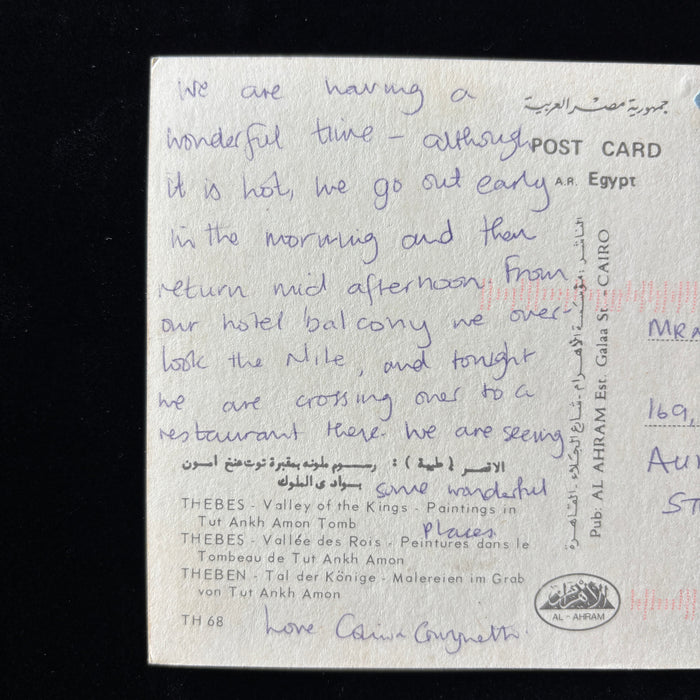 We are having a
wonderful time - although
it is hot, we go out early
in the morning and then
return mid afternoon. From
our hotel balcony we over-
look the Nile, and tonight
we are crossing over to a
restaurant there. We are seeing
some wonderful
places
Love
جمهورية مصر العربية
POST CARD
A.R. Egypt
الاقصر (طيبة) : رسوم ملونه بمقبرة توت عنخ امون
بوادى الملوك
THEBES - Valley of the Kings - Paintings in
Tut Ankh Amon Tomb
THEBES - Vallée des Rois - Peintures dans le
Tombeau de Tut Ankh Amon
THEBEN - Tal der Könige - Malereien im Grab
von Tut Ankh Amon
TH 68
الناشر : مؤسسة الأهرام - شارع الجلاء - القاهرة
Pub: AL AHRAM Est. Galaa St. - CAIRO
الأهرام
AL - AHRAM
169,